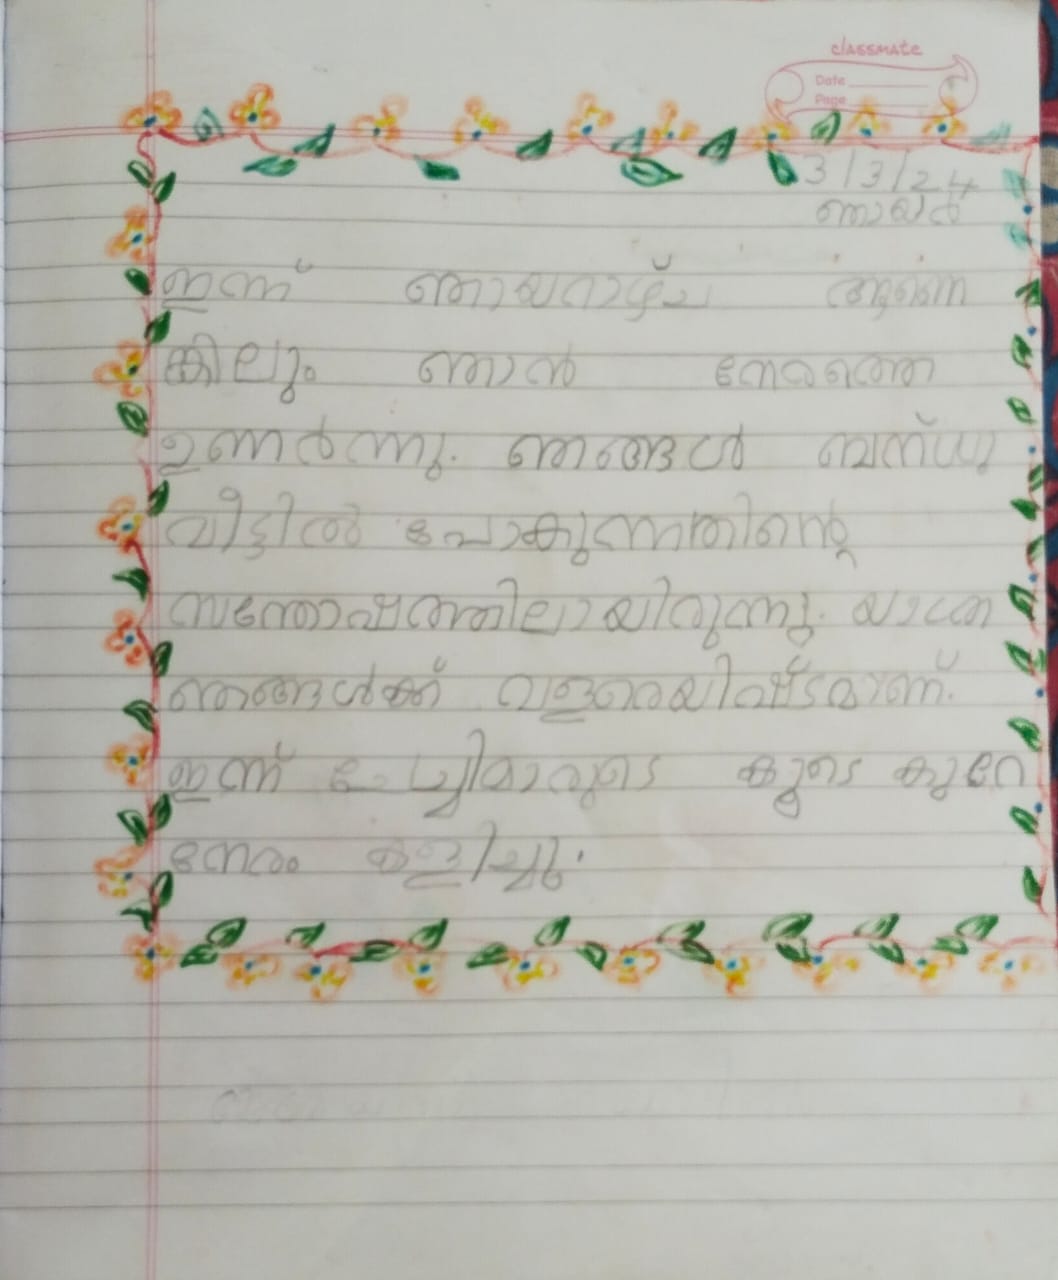 classmate
Date
Page
3/3/24
ഞായർ
ഇന്ന് ഞായറാഴ്ച ആണെ
ങ്കിലും ഞാൻ നേരത്തെ
ഉണർന്നു. ഞങ്ങൾ ബന്ധു
വീട്ടിൽ പോകുന്നതിന്റെ
സന്തോഷത്തിലായിരുന്നു. യാത്ര
ഞങ്ങൾക്ക് വളരെയിഷ്ടമാണ്.
ഇന്ന് കൂടെ കുറേ
നേരം കളിച്ചു.